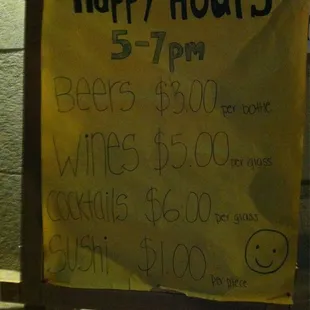 Happy Hours
5-7pm
Beers $3.00 per bottle
Wines $5.00 per glass
Cocktails $6.00 per glass
Sushi $1.00 per piece